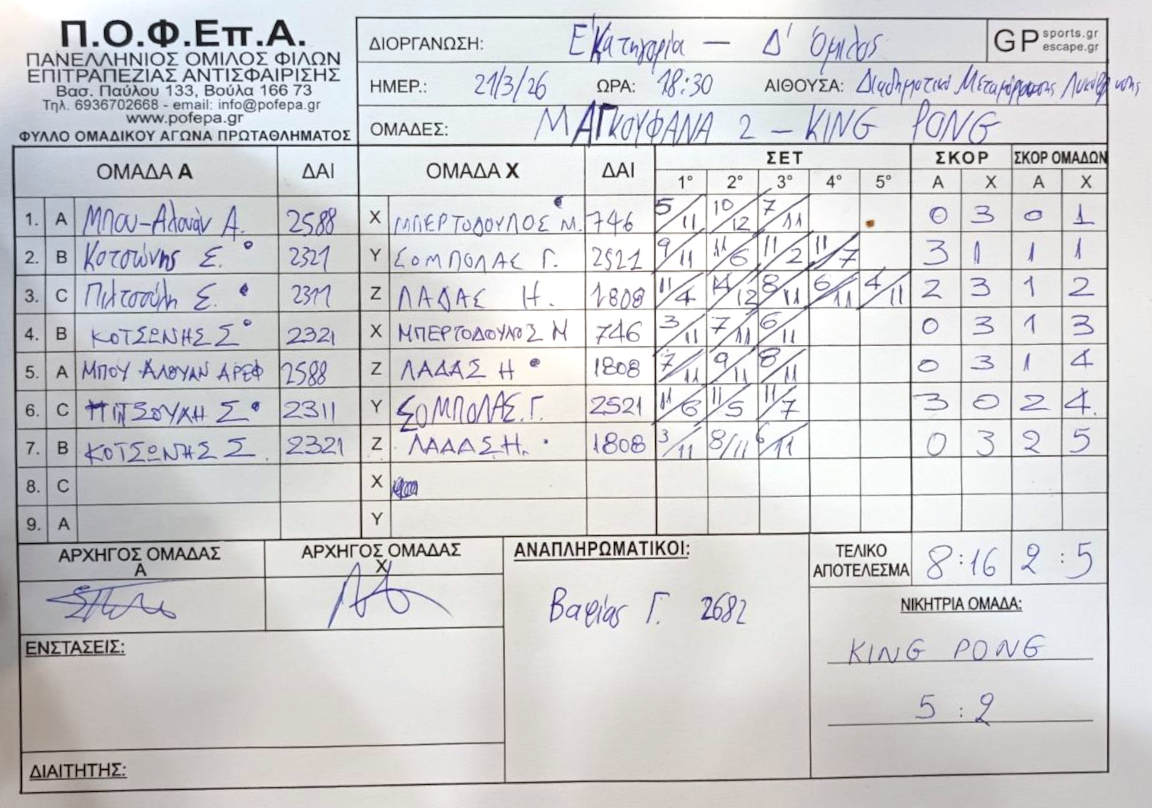 Π.Ο.Φ.Επ.Α.
ΠΑΝΕΛΛΗΝΙΟΣ ΟΜΙΛΟΣ ΦΙΛΩΝ
ΕΠΙΤΡΑΠΕΖΙΑΣ ΑΝΤΙΣΦΑΙΡΙΣΗΣ
Βασ. Παύλου 133, Βούλα 166 73
Τηλ. 6936702668 - email: info@pofepa.gr
www.pofepa.gr
ΦΥΛΛΟ ΟΜΑΔΙΚΟΥ ΑΓΩΝΑ ΠΡΩΤΑΘΛΗΜΑΤΟΣ
ΔΙΟΡΓΑΝΩΣΗ: Ε'Κατηγορία - Δ' Όμιλος
GP sports.gr escape.gr
ΗΜΕΡ.: 21/3/26 ΩΡΑ: 18:30 ΑΙΘΟΥΣΑ: Μεταμόρφωσης
ΟΜΑΔΕΣ: ΜΑΓΚΟΥΦΑΝΑ 2 - KING PONG
ΟΜΑΔΑ Α ΔΑΙ ΟΜΑΔΑ Χ ΔΑΙ ΣΕΤ ΣΚΟΡ ΣΚΟΡ ΟΜΑΔΩΝ
1° 2° 3° 4° 5° Α Χ Α Χ
1. A Μπου-Αλουάν Α. 2588 X ΜΠΕΡΤΟΔΟΥΛΟΣ Μ. 746 5/11 10/12 7/11 0 3 0 1
2. B Κοτσώνης Σ. 2321 Y ΣΟΜΠΟΛΑΣ Γ. 2521 9/11 11/6 11/2 11/7 3 1 1 1
3. C Σ. 2311 Z ΛΑΔΑΣ Η. 1808 11/4 14/12 8/11 6/11 4/11 2 3 1 2
4. B ΚΟΤΣΩΝΗΣ Σ 2321 X ΜΠΕΡΤΟΔΟΥΛΟΣ Μ 746 3/11 7/11 6/11 0 3 1 3
5. A ΜΠΟΥ ΑΛΟΥΑΝ ΑΡΕΦ 2588 Z ΛΑΔΑΣ Η 1808 7/11 9/11 8/11 0 3 1 4
6. C Σ. 2311 Y ΣΟΜΠΟΛΑΣ Γ. 2521 11/6 11/5 11/7 3 0 2 4.
7. B ΚΟΤΣΩΝΗΣ Σ. 2321 Z ΛΑΔΑΣ Η. 1808 3/11 8/11 6/11 0 3 2 5
8. C X
9. A Y
ΑΡΧΗΓΟΣ ΟΜΑΔΑΣ Α
ΑΡΧΗΓΟΣ ΟΜΑΔΑΣ Χ
ΑΝΑΠΛΗΡΩΜΑΤΙΚΟΙ:
Βαφίας Γ. 2682
ΤΕΛΙΚΟ ΑΠΟΤΕΛΕΣΜΑ 8:16 2:5
ΝΙΚΗΤΡΙΑ ΟΜΑΔΑ:
KING PONG
5 : 2
ΕΝΣΤΑΣΕΙΣ:
ΔΙΑΙΤΗΤΗΣ: